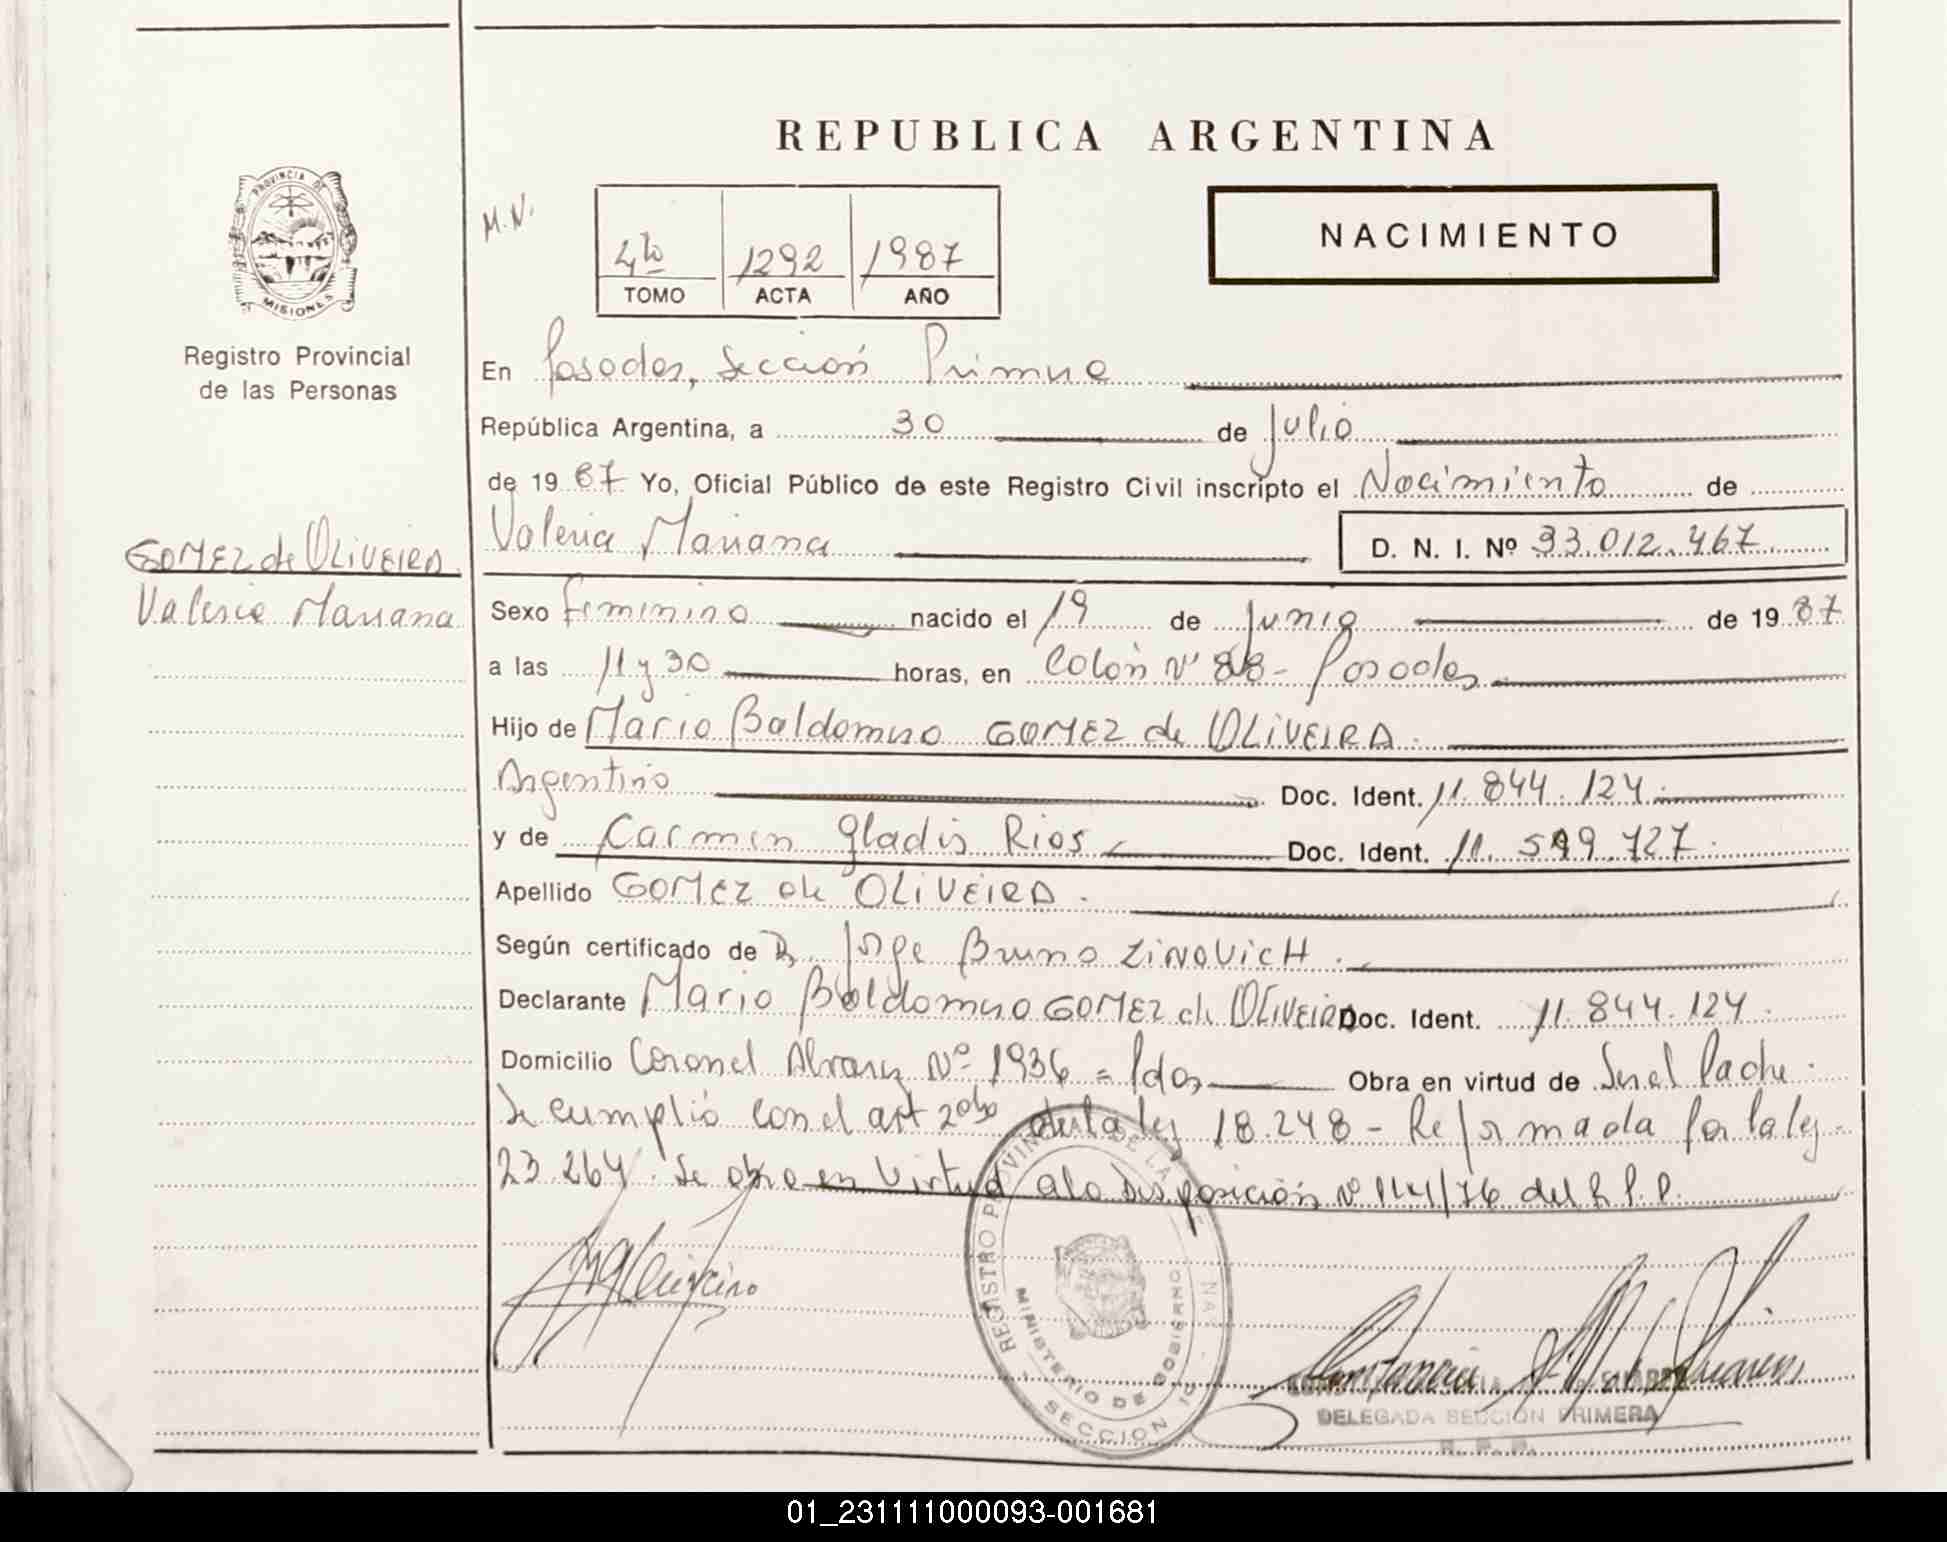 REPUBLICA ARGENTINA
NACIMIENTO
M.N.
4to 1292 1987
TOMO ACTA AÑO
PROVINCIA DE
MISIONES
Registro Provincial
de las Personas
GOMEZ de OLIVEIRA
Valeria Mariana
En Posadas, Sección Primera
República Argentina, a 30 de Julio
de 1987 Yo, Oficial Público de este Registro Civil inscripto el Nacimiento de
Valeria Mariana D. N. I. Nº 33.012.467
Sexo Femenino nacido el 19 de Junio de 1987
a las 11 y 30 horas, en Colón Nº 88 - Posadas
Hijo de Mario Baldomero GOMEZ de OLIVEIRA.
Argentino Doc. Ident. 11.844.124
y de Carmen Gladis Rios Doc. Ident. 11.519.727.
Apellido GOMEZ de OLIVEIRA.
Según certificado de Dr. Jorge Bruno ZINOVICH.
Declarante Mario Baldomero GOMEZ de OLIVEIRA Doc. Ident. 11.844.124.
Domicilio Coronel Alvarez Nº 1936 = Pdas Obra en virtud de Ser el Padre.
Se cumplió con el art 2do de la ley 18.248 - Reformada por la ley
23.264. Se obra en virtud a la Disposición Nº 144/76 del R.P.P.
REGISTRO PROVINCIAL DE LA
MINISTERIO DE GOBIERNO
SECCION 1º
SUAREZ
DELEGADA SECCION PRIMERA
R. P. P.
01_231111000093-001681